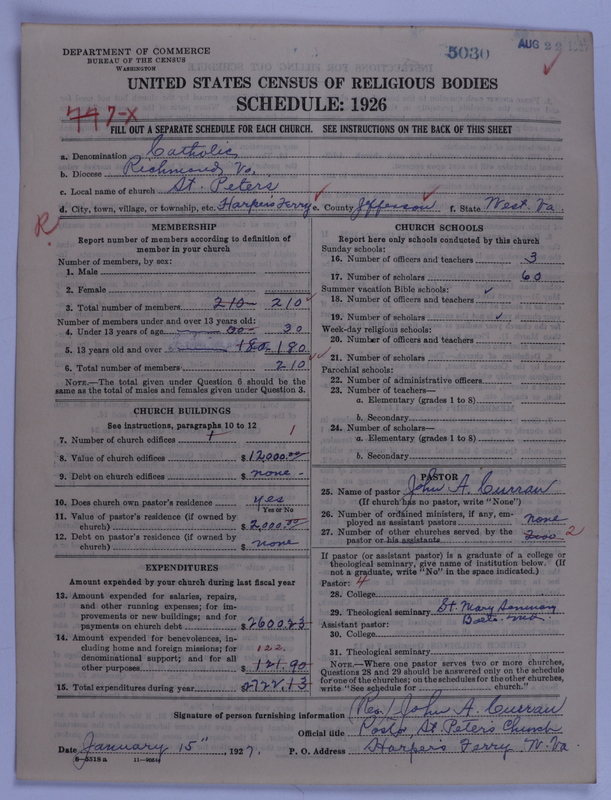 DEPARTMENT OF COMMERCE
BUREAU OF THE CENSUS
WASHINGTON
5030
AUG 22
UNITED STATES CENSUS OF RELIGIOUS BODIES
SCHEDULE: 1926
447-X
FILL OUT A SEPARATE SCHEDULE FOR EACH CHURCH. SEE INSTRUCTIONS ON THE BACK OF THIS SHEET
a. Denomination Catholic
b. Diocese Richmond Va.
c. Local name of church St. Peters
d. City, town, village, or township, etc. Harper's Ferry e. County Jefferson f. State West. Va
R
MEMBERSHIP
Report number of members according to definition of member in your church
Number of members, by sex:
1. Male
2. Female
3. Total number of members 210 210
Number of members under and over 13 years old:
4. Under 13 years of age 30
5. 13 years old and over 180 180
6. Total number of members 210
NOTE.—The total given under Question 6 should be the same as the total of males and females given under Question 3.
CHURCH BUILDINGS
See instructions, paragraphs 10 to 12
7. Number of church edifices 1 1
8. Value of church edifices $12,000.00
9. Debt on church edifices $ none -
10. Does church own pastor's residence yes
Yes or No
11. Value of pastor's residence (if owned by church) $2,000.00
12. Debt on pastor's residence (if owned by church) $ none
EXPENDITURES
Amount expended by your church during last fiscal year
13. Amount expended for salaries, repairs, and other running expenses; for improvements or new buildings; and for payments on church debt $2600.23
14. Amount expended for benevolences, including home and foreign missions; for denominational support; and for all other purposes 122. $121.90
15. Total expenditures during year $2722.13
CHURCH SCHOOLS
Report here only schools conducted by this church
Sunday schools:
16. Number of officers and teachers 3
17. Number of scholars 60
Summer vacation Bible schools:
18. Number of officers and teachers
19. Number of scholars
Week-day religious schools:
20. Number of officers and teachers
21. Number of scholars
Parochial schools:
22. Number of administrative officers
23. Number of teachers—
a. Elementary (grades 1 to 8)
b. Secondary
24. Number of scholars—
a. Elementary (grades 1 to 8)
b. Secondary
PASTOR
25. Name of pastor John A. Curran
(If church has no pastor, write "None")
26. Number of ordained ministers, if any, employed as assistant pastors none
27. Number of other churches served by the pastor or his assistants two 2
If pastor (or assistant pastor) is a graduate of a college or theological seminary, give name of institution below. (If not a graduate, write "No" in the space indicated.)
Pastor: 4
28. College
29. Theological seminary St. Mary Seminary
Balto. Md.
Assistant pastor:
30. College
31. Theological seminary
NOTE.—Where one pastor serves two or more churches, Questions 28 and 29 should be answered only on the schedule for one of the churches; on the schedules for the other churches, write "See schedule for church."
Signature of person furnishing information Rev. John A. Curran
Official title Pastor St. Peters Church
Date January 15" 1927. P. O. Address Harper's Ferry W. Va.
6—5518a